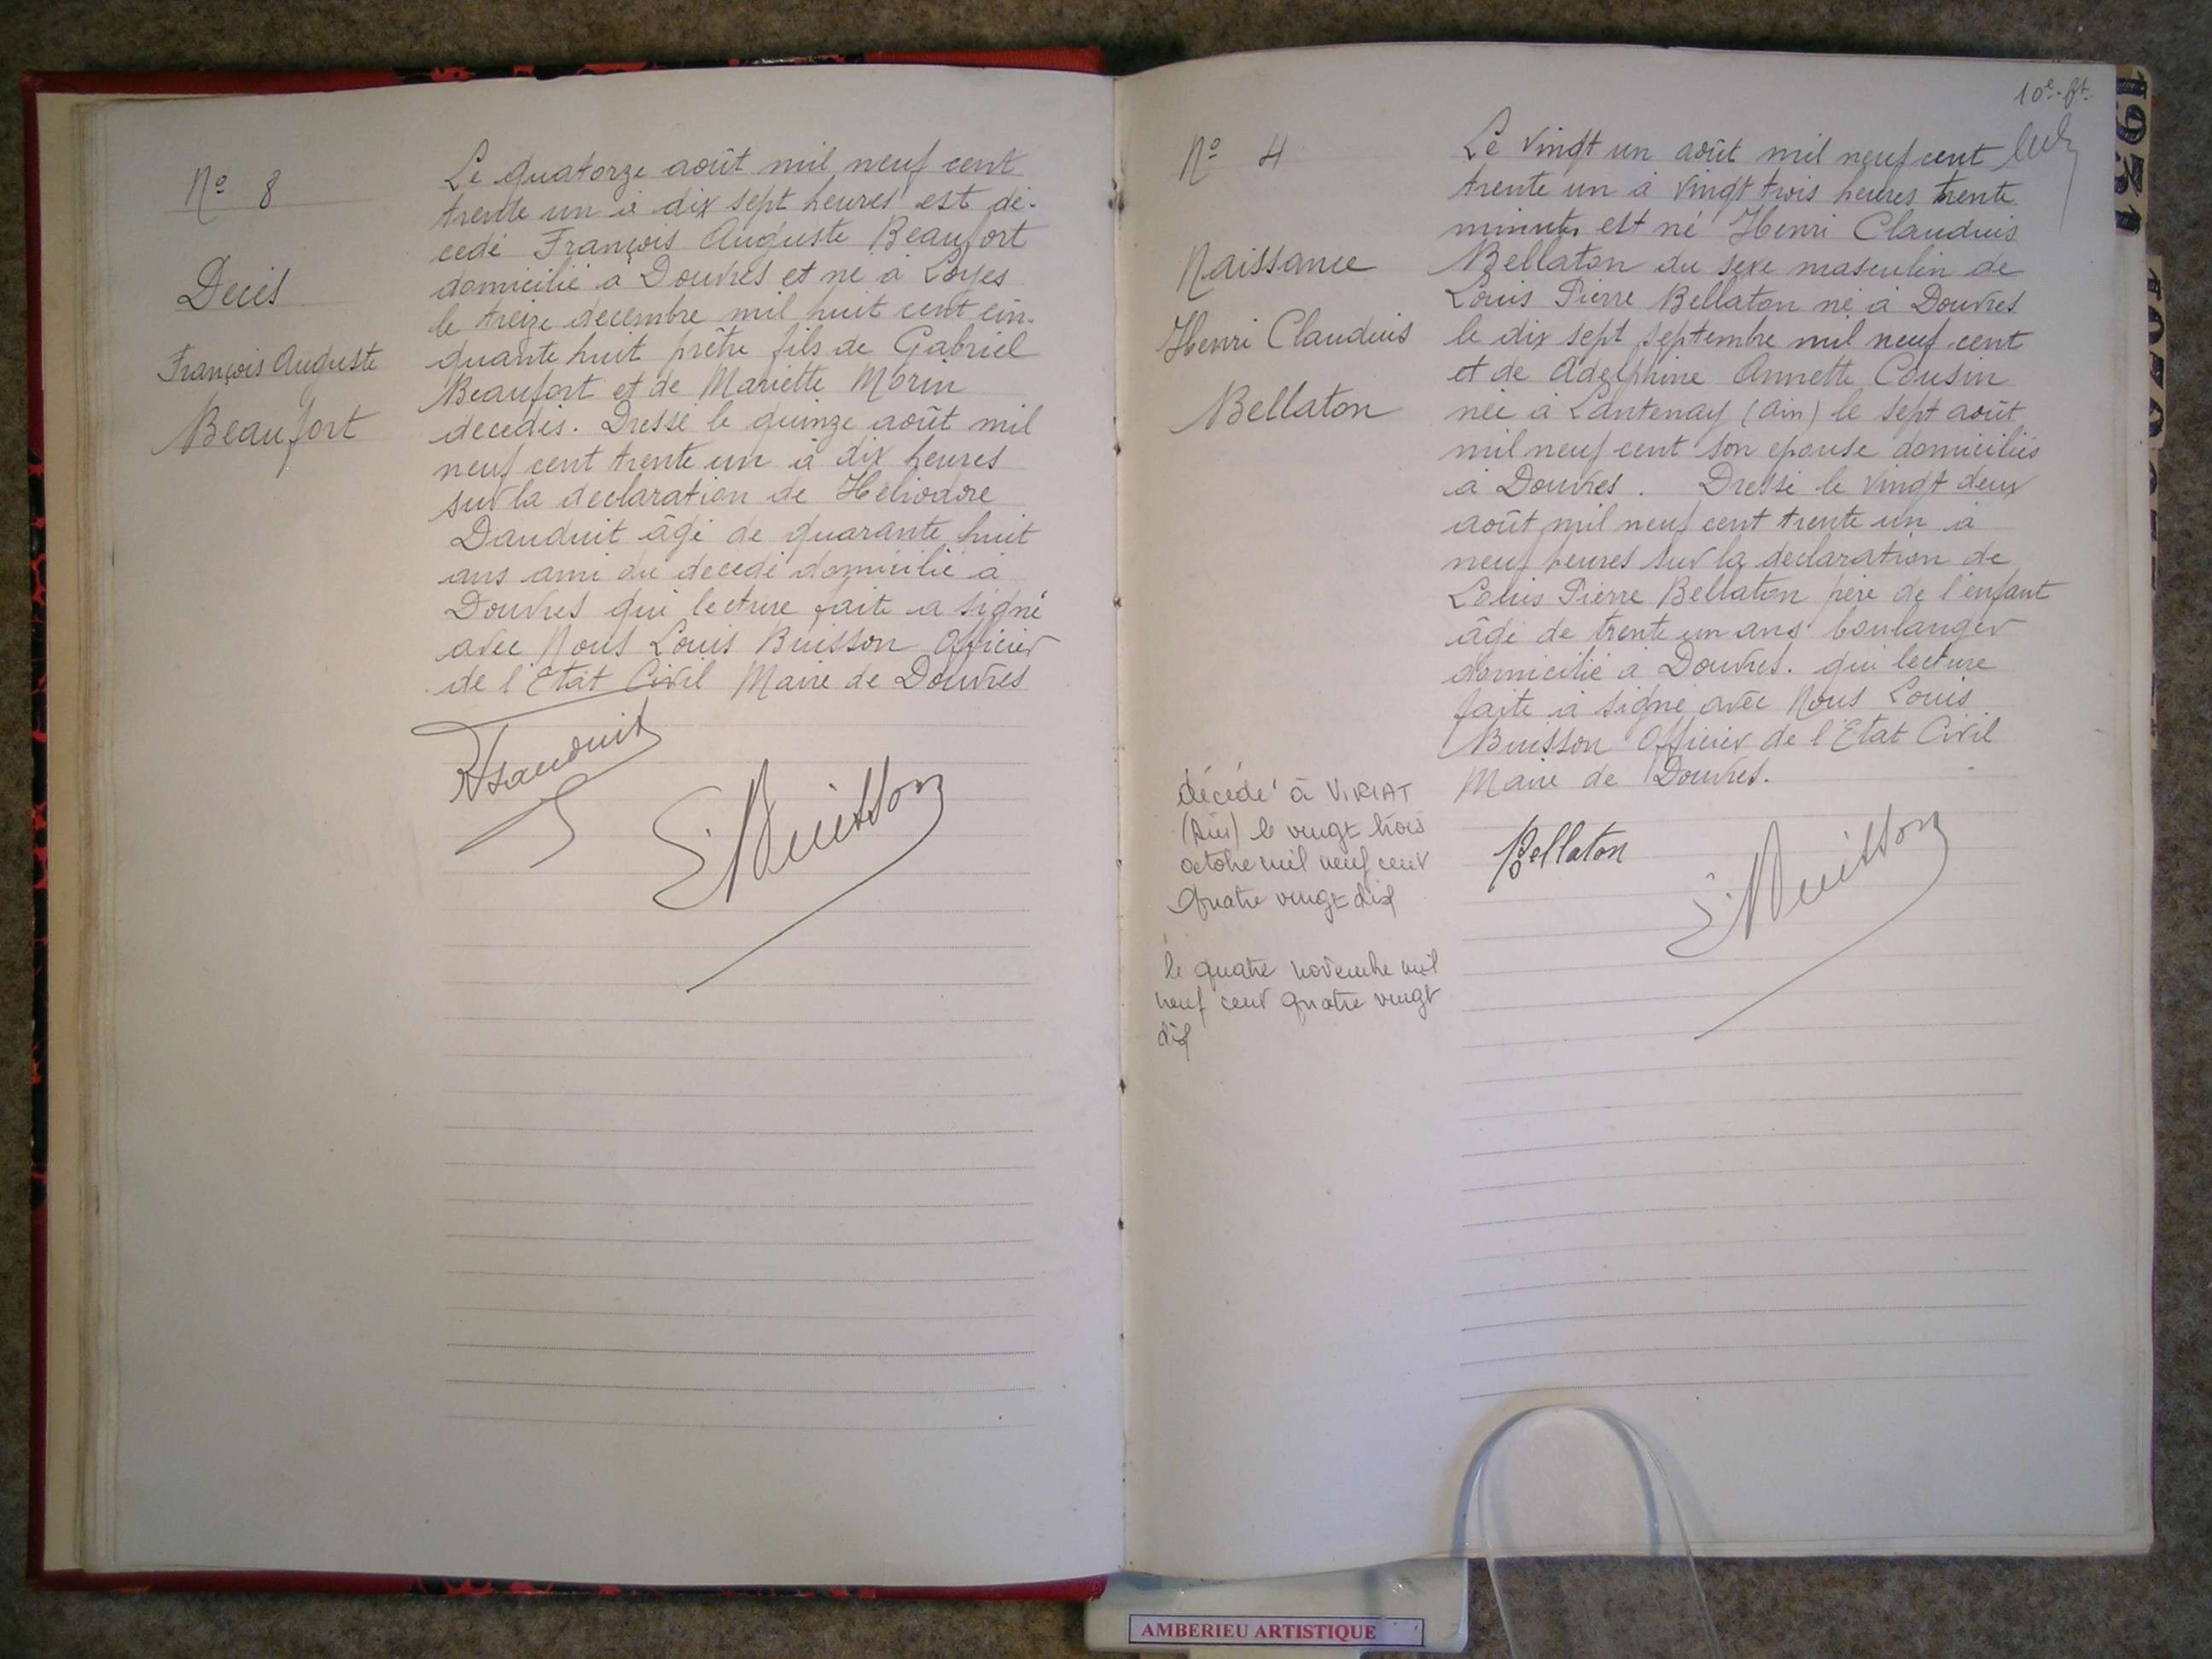 Nº 8
Décès
François Auguste
Beaufort
Le quatorze août mil neuf cent
trente un à dix sept heures est dé-
cédé François Auguste Beaufort
domicilié à Douvres et né à Loyes
le treize décembre mil huit cent cin-
quante huit prêtre fils de Gabriel
Beaufort et de Mariette Morin
décédés. Dressé le quinze août mil
neuf cent trente un à dix heures
sur la déclaration de Héliodore
Dauduit âgé de quarante huit
ans ami du décédé domicilié à
Douvres qui lecture faite a signé
avec Nous Louis Buisson Officier
de l'Etat Civil Maire de Douvres
L Buisson
10e
Nº 4
Naissance
Henri Claudius
Bellaton
Le vingt un août mil neuf cent
trente un à vingt trois heures trente
minutes est né Henri Claudius
Bellaton du sexe masculin de
Louis Pierre Bellaton né à Douvres
le dix sept septembre mil neuf cent
et de Adelphine Annette Cousin
née à Lantenay (Ain) le sept août
mil neuf cent son epouse domiciliés
à Douvres. Dressé le vingt deux
août mil neuf cent trente un à
neuf heures sur la déclaration de
Louis Pierre Bellaton père de l'enfant
âgé de trente un ans boulanger
domicilié à Douvres. qui lecture
faite a signé avec Nous Louis
Buisson Officier de l'Etat Civil
Maire de Douvres.
décédé à VIRIAT
(Ain) le vingt trois
octobre mil neuf cent
quatre vingt dix
le quatre novembre mil
neuf cent quatre vingt
dix
Bellaton
L Buisson
1931
AMBERIEU ARTISTIQUE